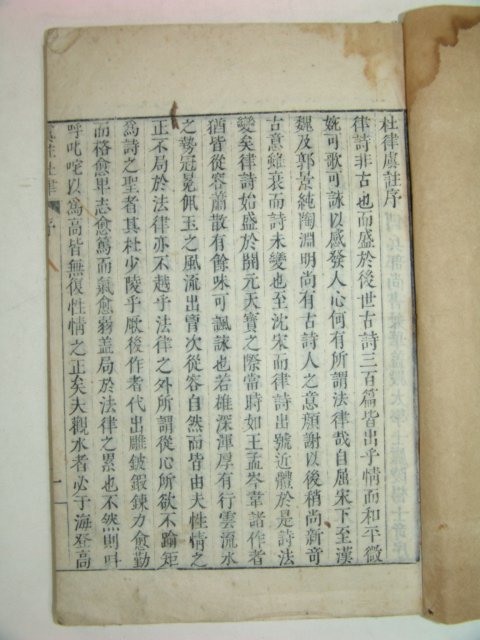 杜律虞註序
律詩非古也而盛於後世古詩三百篇皆出乎情而和平微
婉可歌可詠以感發人心何有所謂法律哉自屈宋下至漢
魏及郭景純陶淵明尚有古詩人之意顏謝以後稍尚新奇
古意雖衰而詩未變也至沈宋而律詩出號近體於是詩法
變矣律詩始盛於開元天寶之際當時如王孟岑韋諸作者
猶皆從容蕭散有餘味可諷詠也若雄深渾厚有行雲流水
之勢冠冕佩玉之風流出胷次從容自然而皆由夫性情之
正不局於法律亦不越乎法律之外所謂從心所欲不踰矩
爲詩之聖者其杜少陵乎厥後作者代出雕鎪鍛鍊力愈勤
而格愈卑志愈篤而氣愈弱蓋局於法律之累也不然則叫
呼叱咤以爲高皆無復性情之正矣夫觀水者必于海登高
虞註杜律 序 一